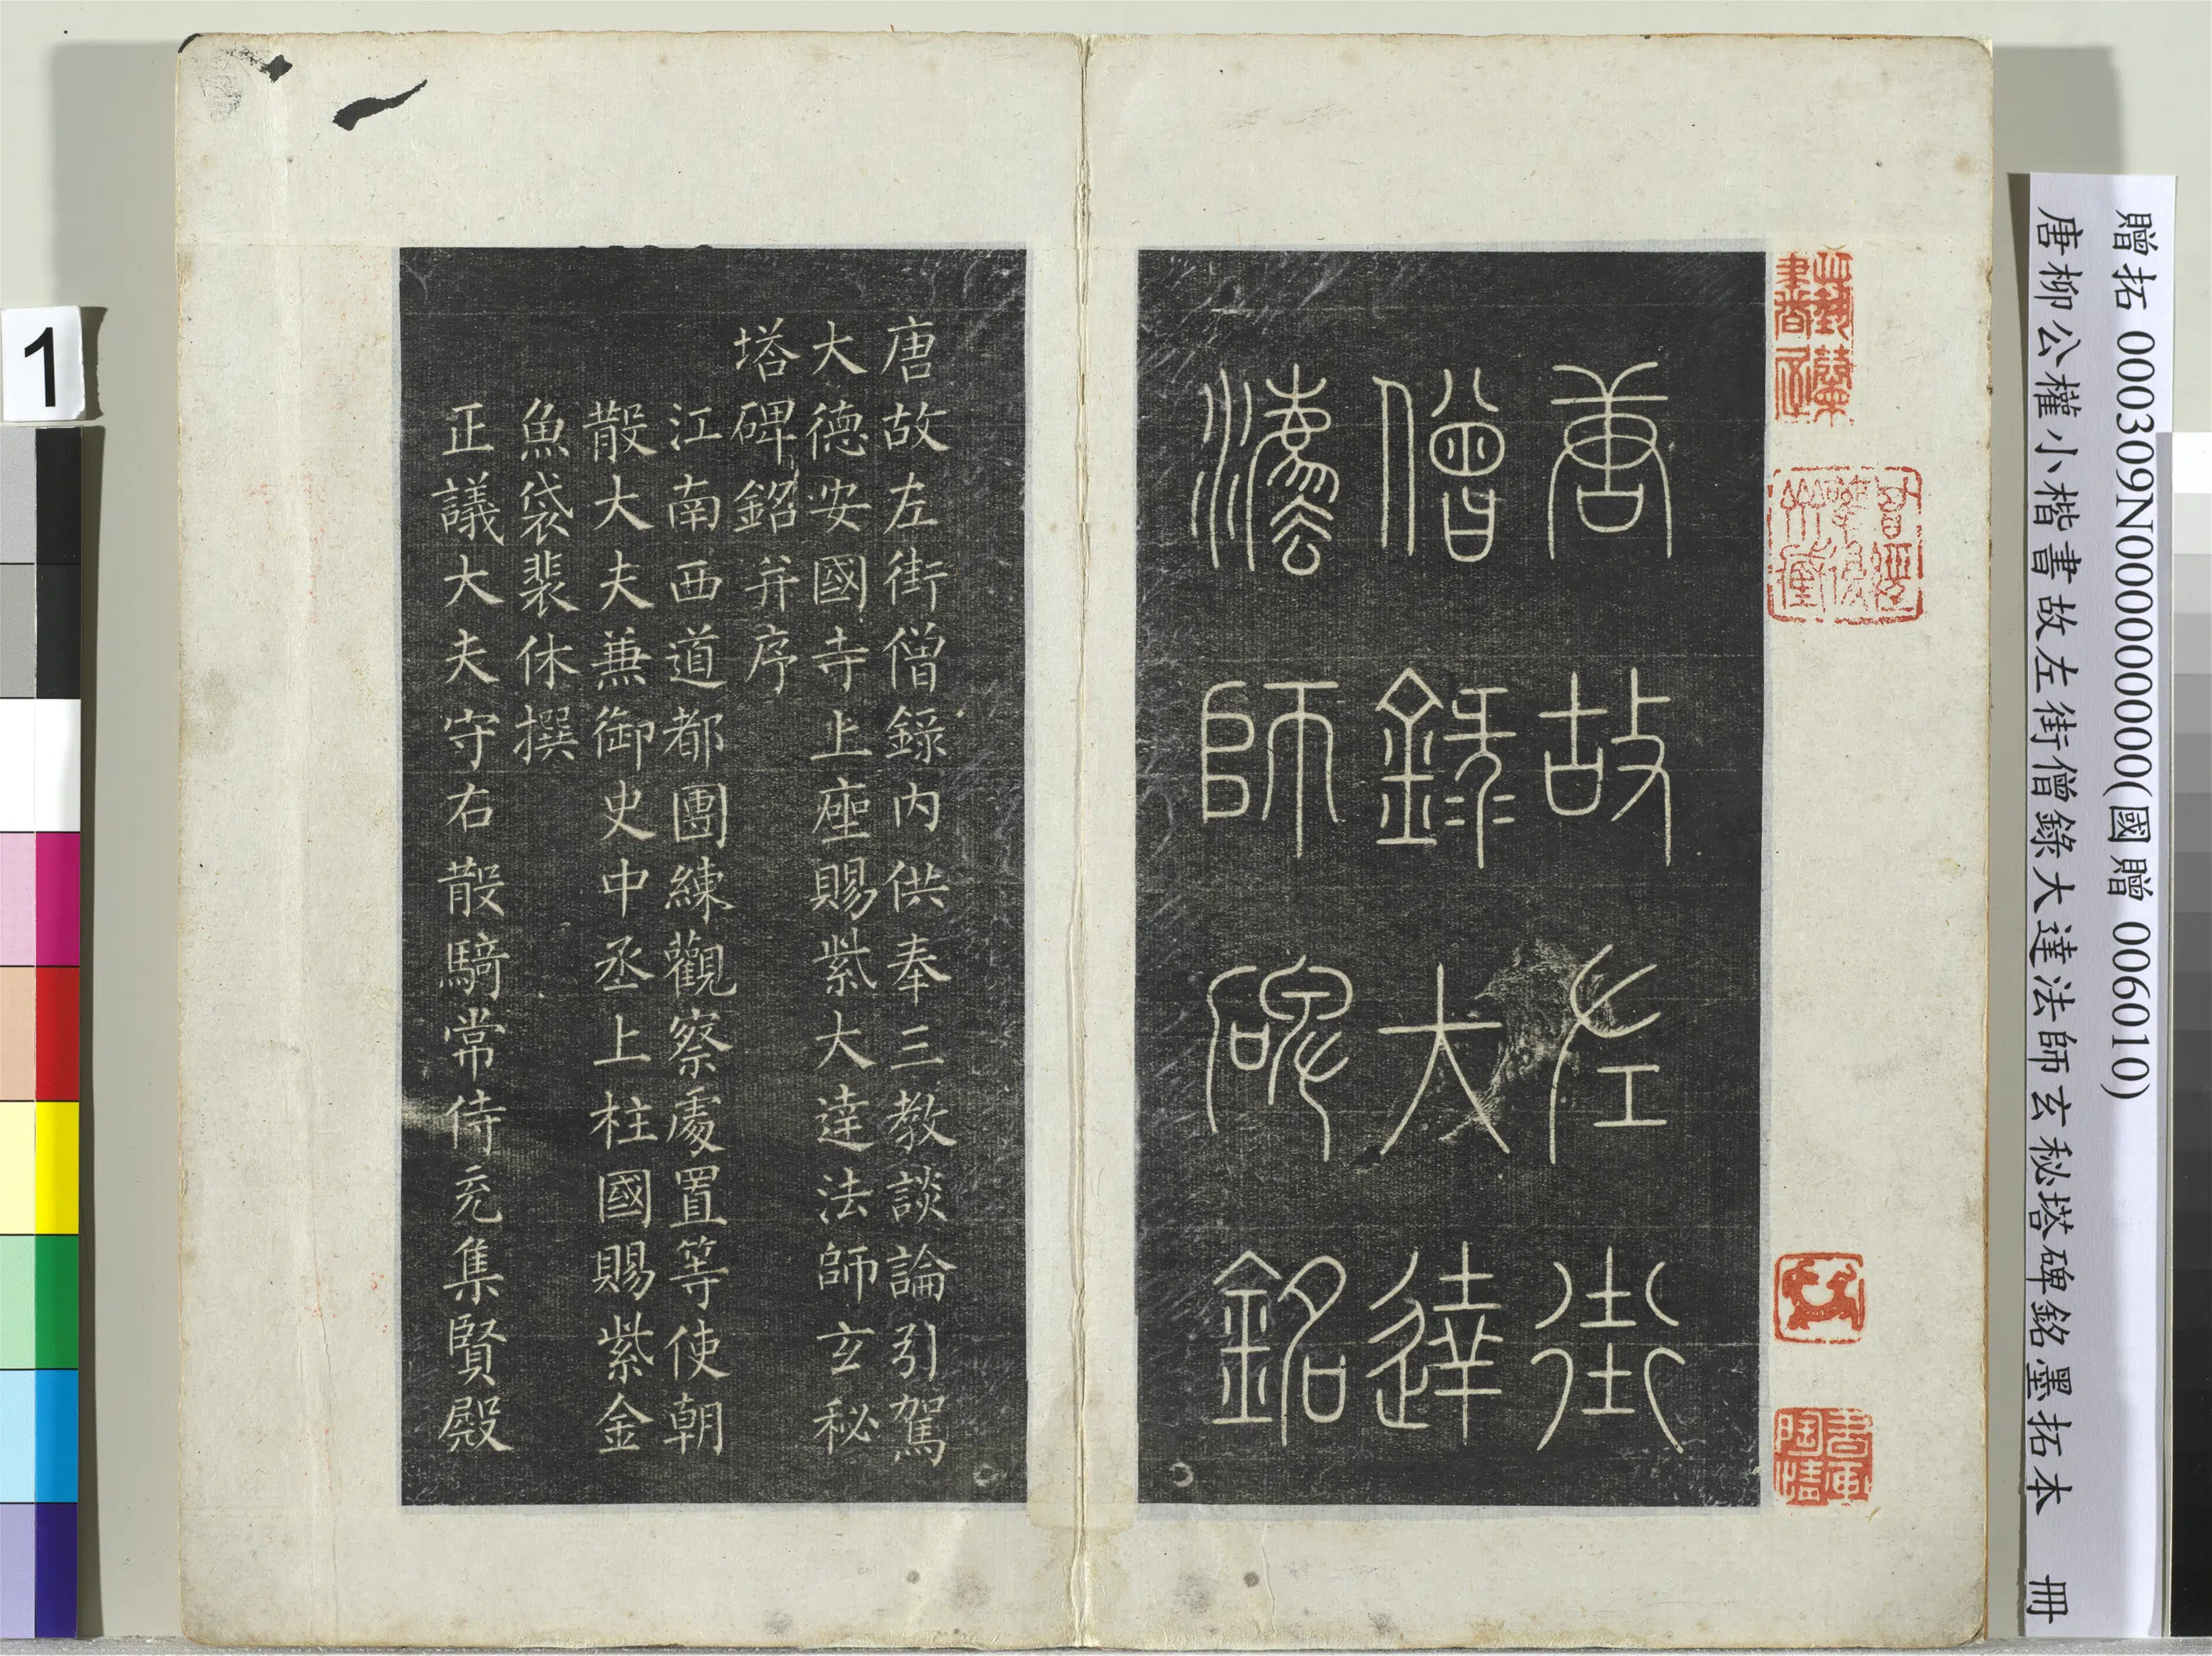 贈拓 000309N000000000(國贈 006010)
唐柳公權小楷書故左街僧錄大達法師玄秘塔碑銘墨拓本 冊
唐故左街
僧錄大達
法師碑銘
唐故左街僧錄内供奉三教談論引駕
大德安國寺上座賜紫大達法師玄秘
塔碑銘并序
江南西道都團練觀察處置等使朝
散大夫兼御史中丞上柱國賜紫金
魚袋裴休撰
正議大夫守右散騎常侍充集賢殿
1